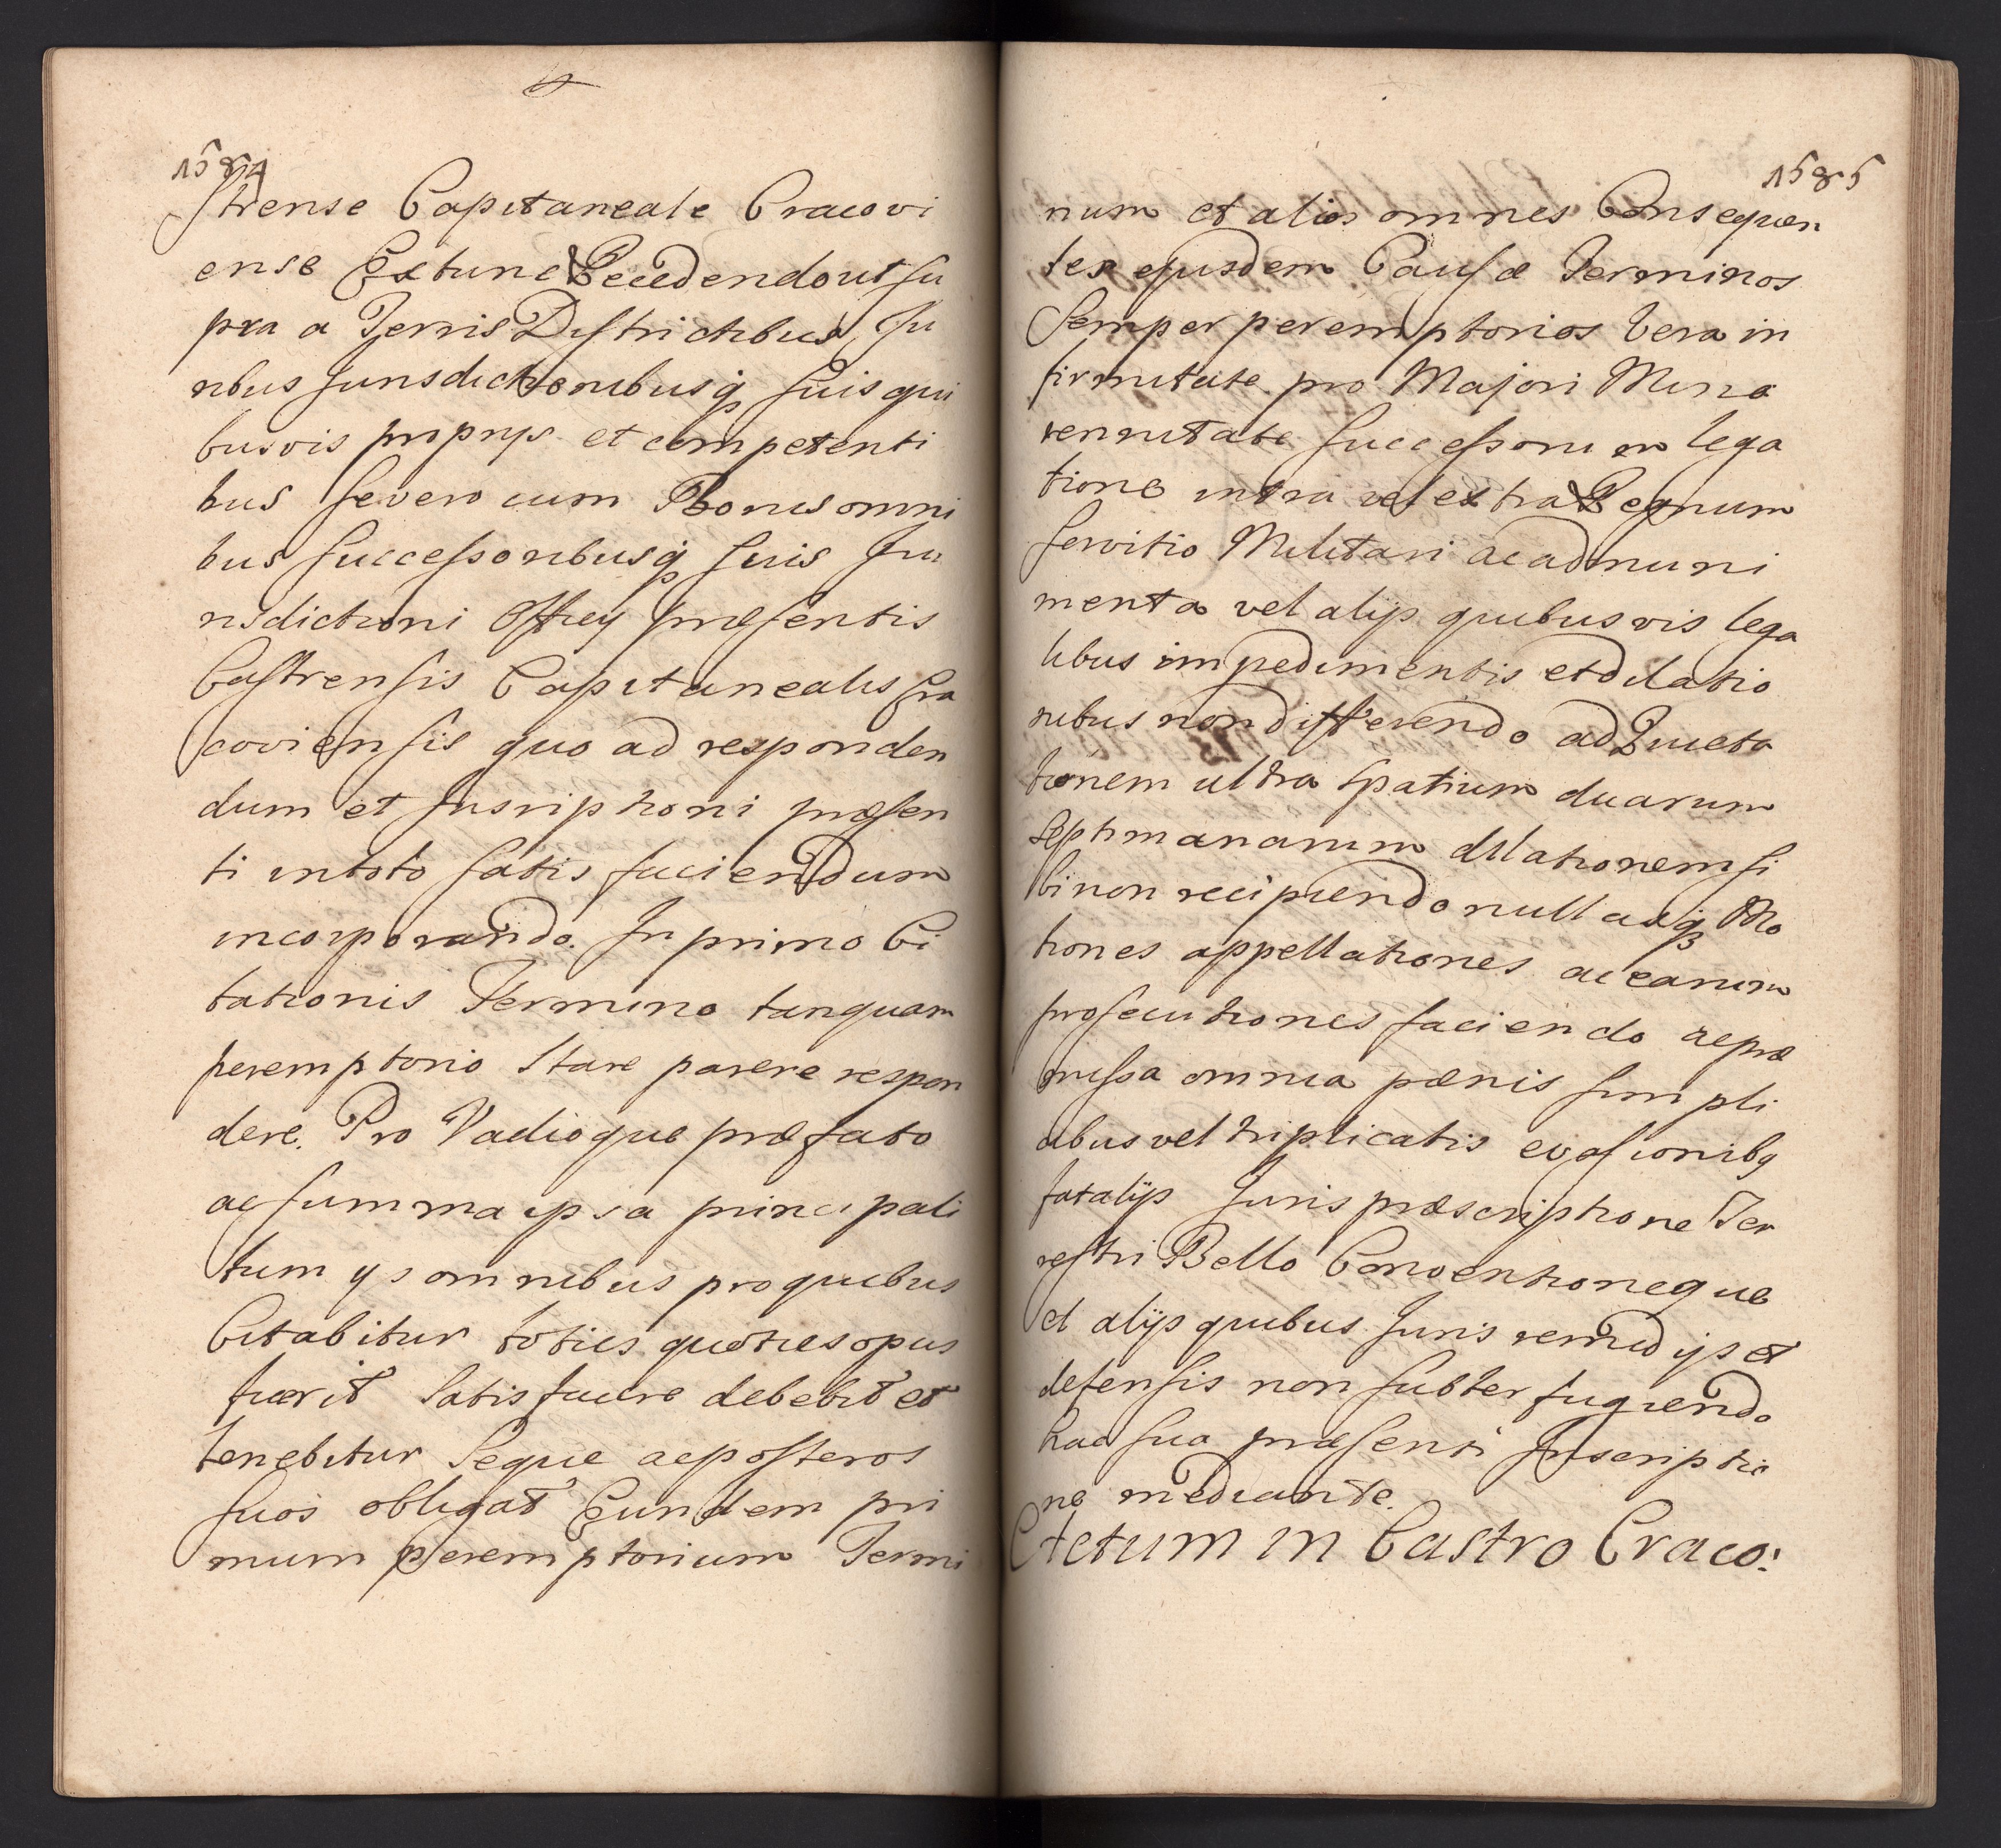 1584
strense Capitaneale Cracovi
ense Extunc Recedendo ut su
pra a Terris Districtibus Ju
ribus Jurisdictionibusq suis qui
busvis proprys et competenti
bus severo cum Bonis omni
bus successoribusq suis Ju
risdictioni Officy præsentis
Castrensis Capitanealis Cra
coviensis quo ad responden
dum et Inscriptioni præsen
ti intoto satis faciendum
incorporando. In primo Ci
tationis Termino tanquam
peremptorio Stare parere respon
dere. Pro Vadioque præfato
ac summa ipsa principali
tum ys omnibus pro quibus
Citabitur toties quoties opus
fuerit Satisfacere debebit et
tenebitur Seque ac posteros
suos obligat Eundem pri
mum peremptorium Termi
1585
num et alios omnes Consequen
tes ejusdem Causæ Terminos
Semper peremptorios Vera in
firmitate pro Majori Mino
rennitate successorum lega
tione intra vel extra Regnum
servitio Militari ac ad muni
menta vel alijs quibusvis lega
libus impedimentis et dilatio
nibus non differendo ad Quieta
tionem ultra spatium duarum
septimanarum dilationem si
bi non recipiendo nullasq Mo
tiones appellationes ac earum
prosecutiones faciendo ac præ
missa omnia pænis simpli
cibus vel triplicatis evasionibq
fatalijs Juris præscriptione Ter
restri Bello Conventioneque
et alijs quibus Juris remedijs et
defensis non subterfugiendo
hac sua præsenti Inscriptio
ne mediante.
Actum in Castro Craco: